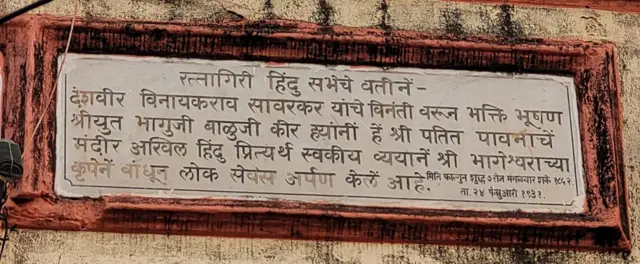 रत्नागिरी हिंदु सभेचे वतीनें -
देशवीर विनायकराव सावरकर यांचे विनंती वरून भक्ति भूषण
श्रीयुत भागुजी बाळुजी कीर ह्यांनीं हें श्री पतित पावनाचें
मंदीर अखिल हिंदु प्रित्यर्थ स्वकीय व्ययानें श्री भागेश्वराच्या
कृपेनें बांधून लोक सेवेस अर्पण केलें आहे. मिति फाल्गुन शुद्ध ७ रोज मंगळवार शके १८५२
ता. २४ फेब्रुआरी १९३१.